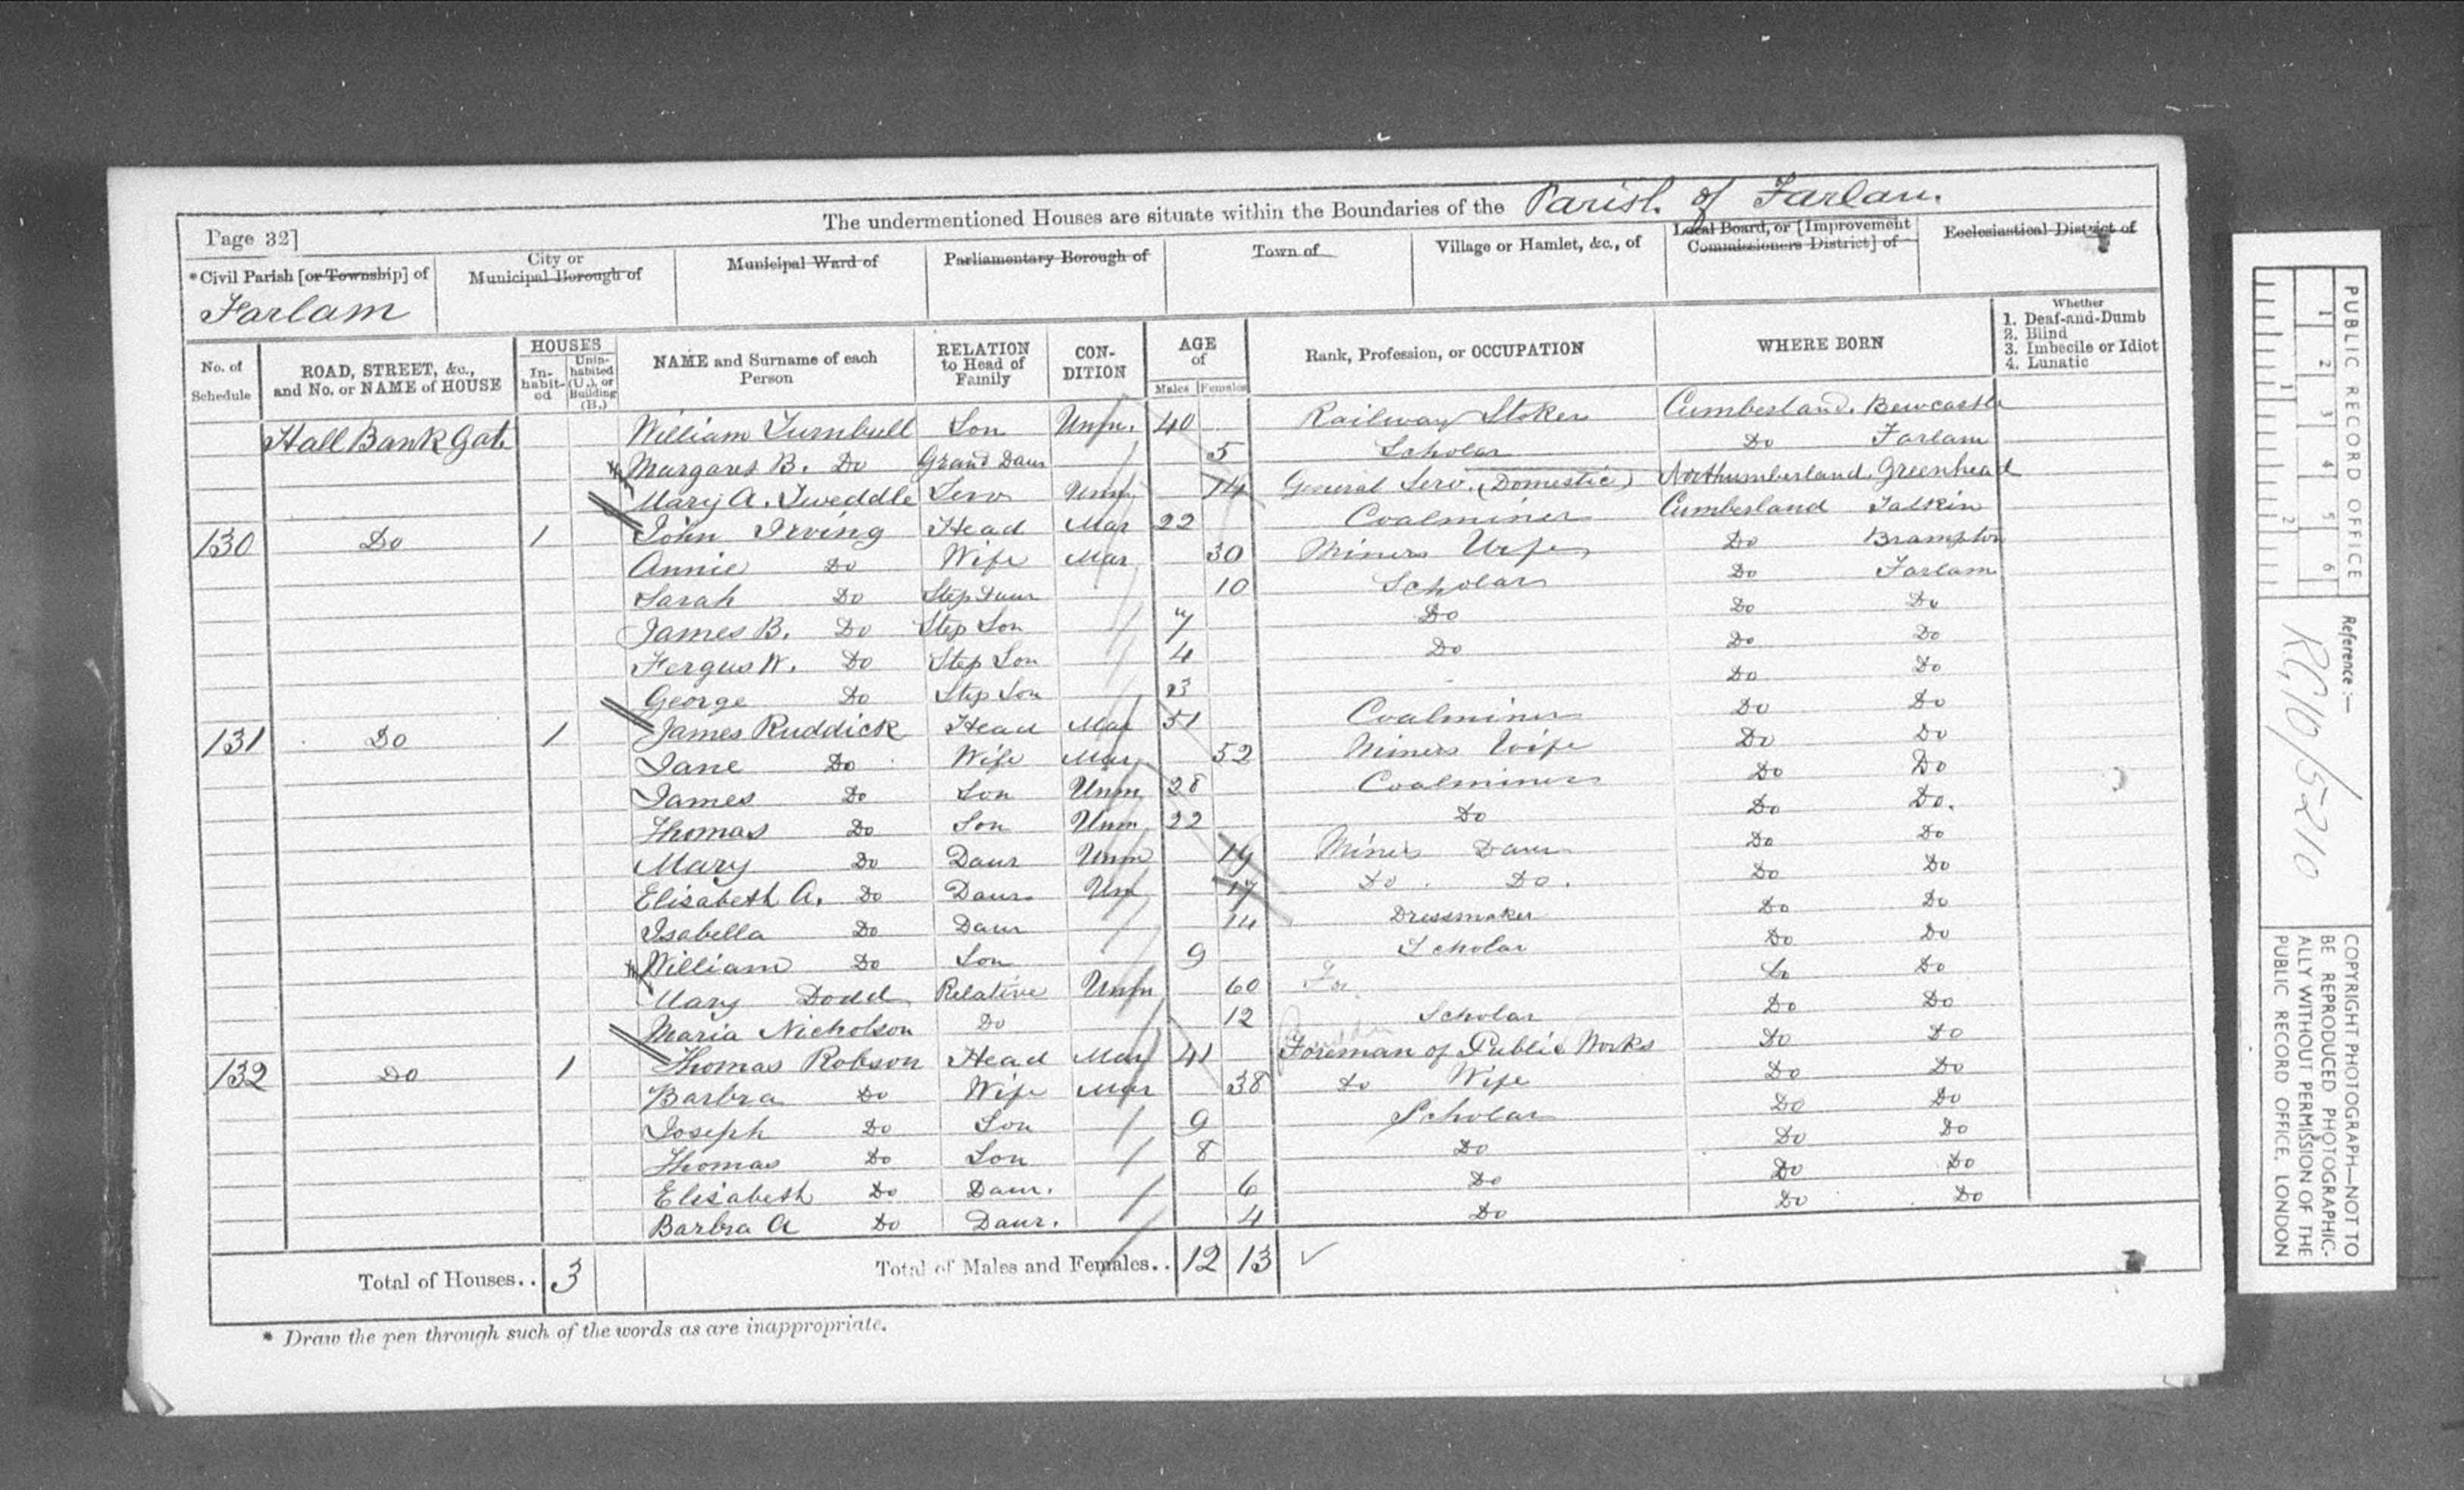 The undermentioned Houses are situate within the Boundaries of the Parish of Farlam.
Page 32]
*Civil Parish [or Township] of
Farlam
City or
Municipal Borough of
Municipal Ward of
Parliamentary Borough of
Town of
Village or Hamlet, &c., of
Local Board, or [Improvement
Commissioners District] of
Ecclesiastical District of
No. of
Schedule
ROAD, STREET, &c.,
and No. or NAME of HOUSE
HOUSES
In-
habit-
ed
Unin-
habited
(U.), or
Building
(B.)
NAME and Surname of each
Person
RELATION
to Head of
Family
CON-
DITION
AGE
of
Males Females
Rank, Profession, or OCCUPATION
WHERE BORN
Whether
1. Deaf-and-Dumb
2. Blind
3. Imbecile or Idiot
4. Lunatic
Hall Bank Gate William Turnbull Son Unm. 40 Railway Stoker Cumberland. Bewcastle
Margaret B. Do Grand Daur 5 Scholar Do Farlam
Mary A. Tweddle Serv Unm. 14 General Serv. (Domestic) Northumberland, Greenhead
130 Do 1 John Irving Head Mar 22 Coalminer Cumberland Talkin
Annie Do Wife Mar 30 Miners Wife Do Brampton
Sarah Do Step Daur 10 Scholar Do Farlam
James B. Do Step Son 7 Do Do Do
Fergus W. Do Step Son 4 Do Do Do
George Do Step Son 3 Do Do
131 Do 1 James Ruddick Head Mar 51 Coalminer Do Do
Jane Do Wife Mar 52 Miners Wife Do Do
James Do Son Unm 28 Coalminer Do Do
Thomas Do Son Unm 22 Do Do Do.
Mary Do Daur Unm 19 Miners Daur Do Do
Elisabeth A. Do Daur Un 17 Do. Do. Do Do
Isabella Do Daur 14 Dressmaker Do Do
William Do Son 9 Scholar Do Do
Mary Dodd Relative Unm 60 Do Do
Maria Nicholson Do 12 Scholar Do Do
132 Do 1 Thomas Robson Head Mar 41 Foreman of Public Works Do Do
Barbra Do Wife Mar 38 Do Wife Do Do
Joseph Do Son 9 Scholar Do Do
Thomas Do Son 8 Do Do Do
Elisabeth Do Daur. 6 Do Do Do
Barbra A Do Daur. 4 Do Do Do
Total of Houses.. 3 Total of Males and Females.. 12 13
* Draw the pen through such of the words as are inappropriate.
PUBLIC RECORD OFFICE
1 2 3 4 5 6
1 2
Reference:—
RG 10/5210
COPYRIGHT PHOTOGRAPH—NOT TO
BE REPRODUCED PHOTOGRAPHIC-
ALLY WITHOUT PERMISSION OF THE
PUBLIC RECORD OFFICE, LONDON